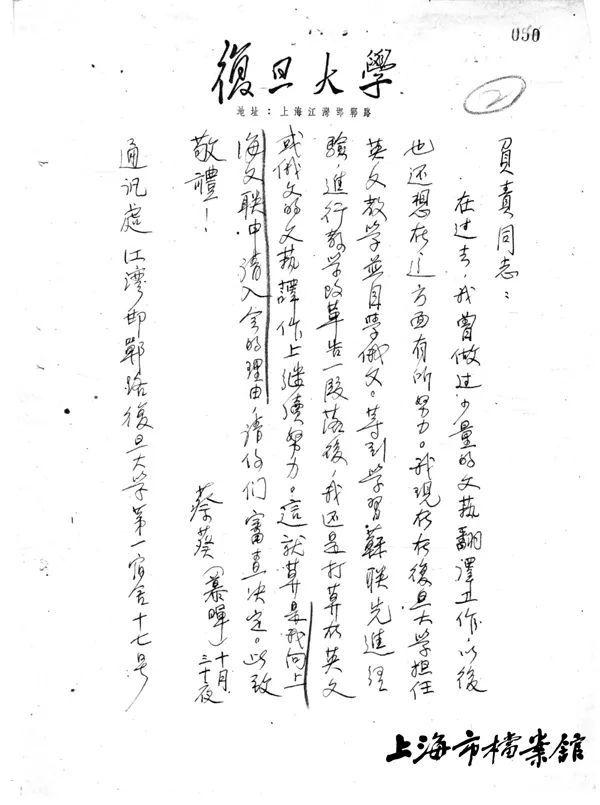 030
復旦大學
地址：上海江灣邯鄲路
2
負責同志：
在过去，我曾做过少量的文藝翻譯工作，以後
也还想在这方面有所努力。我現在在復旦大学担任
英文教学並自學俄文。等到学習蘇联先進經
驗，進行教学改革告一段落後，我还是打算在英文
或俄文的文藝譯作上继續努力。這就算是我向上
海文联申請入会的理由，請你们審查决定。此致
敬禮！
蔡葵（慕暉）十月
三十夜
通訊處 江灣邯鄲路復旦大学第一宿舍十七号
上海市檔案館